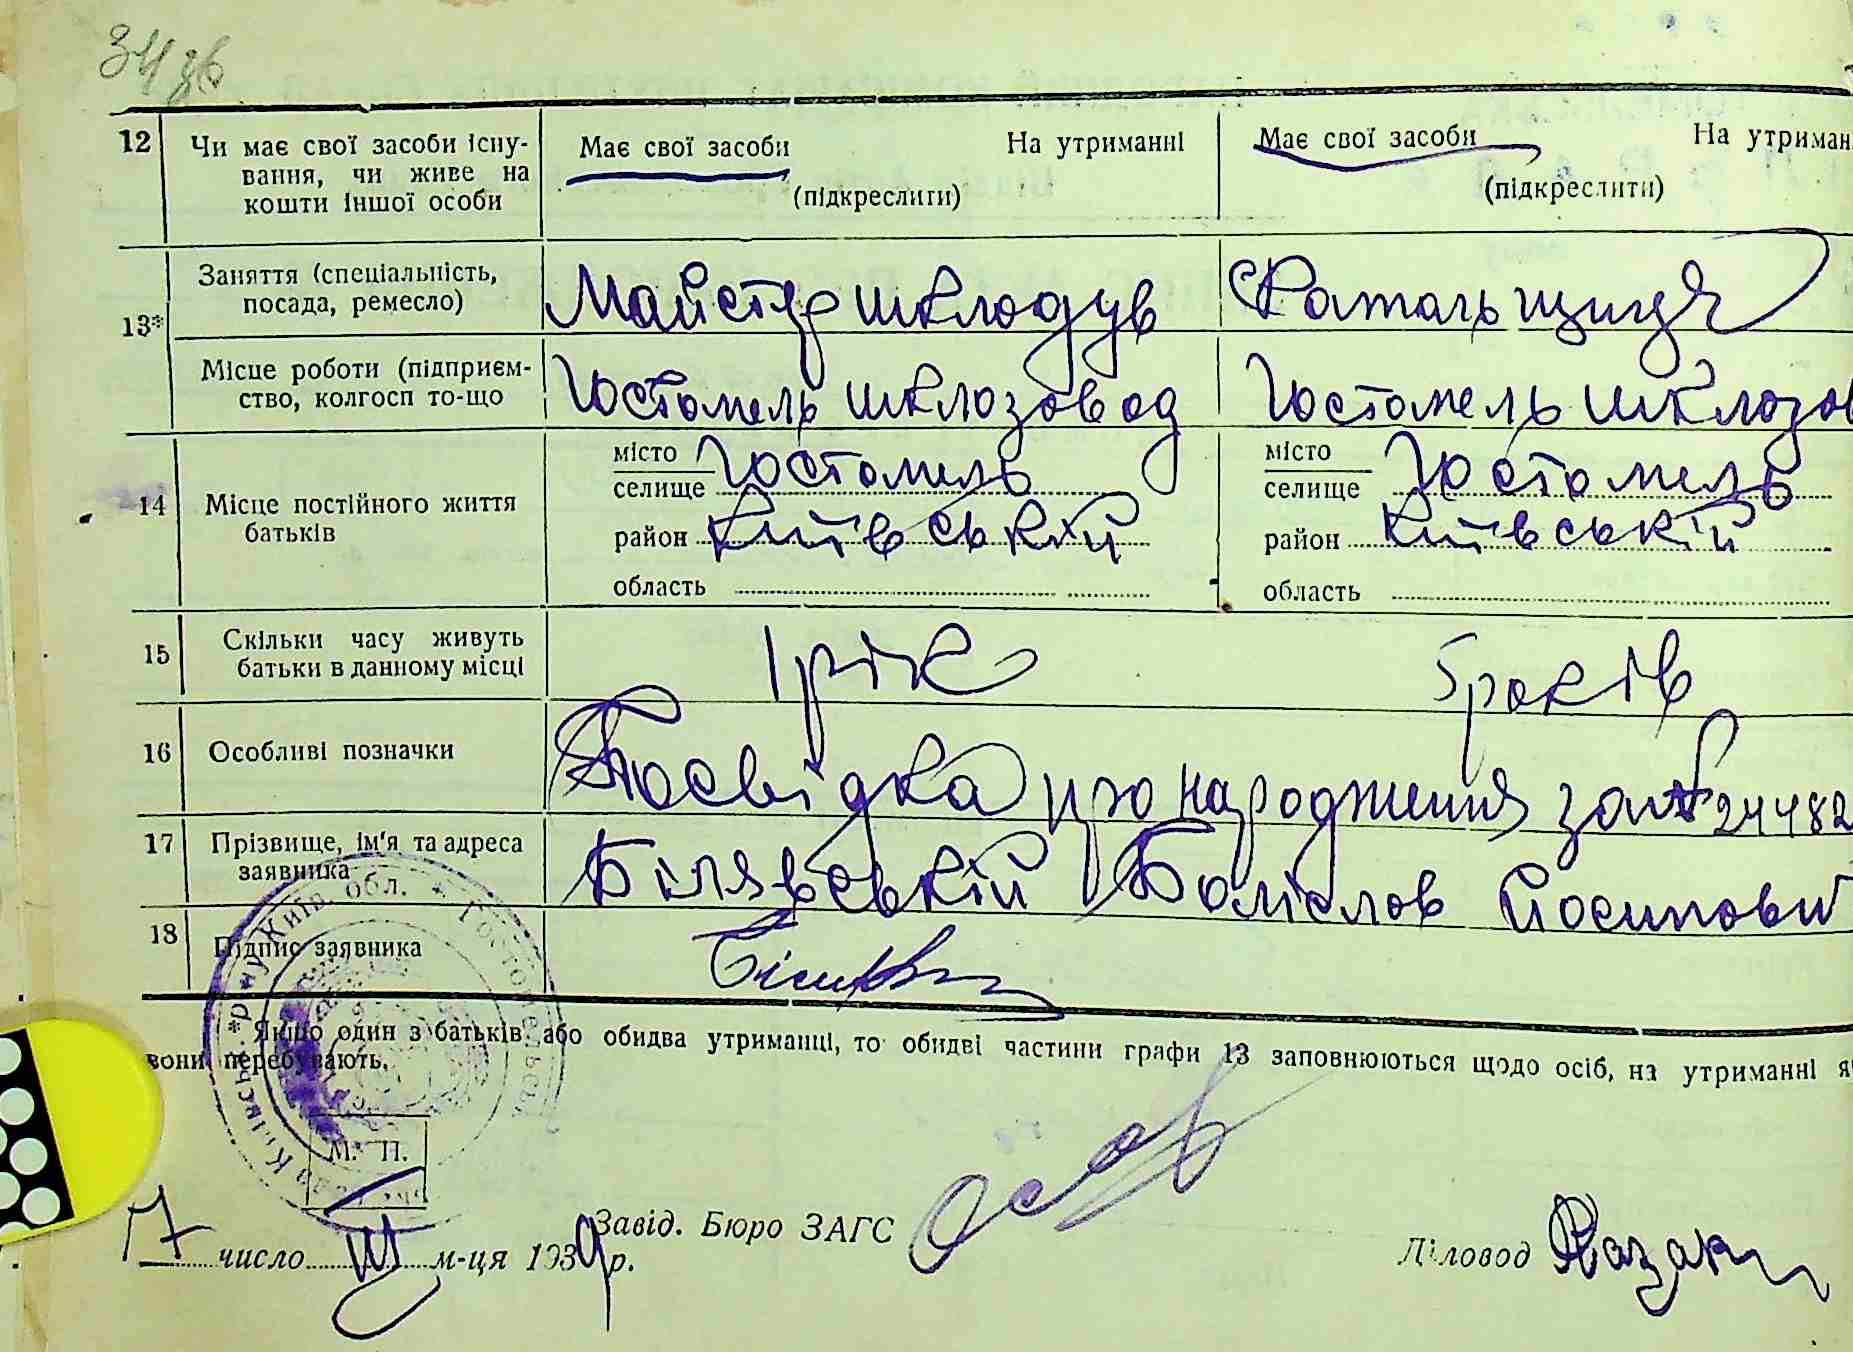 34 зв
12 Чи має свої засоби існу- Має свої засоби На утриманні Має свої засоби На утриман
вання, чи живе на (підкреслити) (підкреслити)
кошти іншої особи
13* Заняття (спеціальність, Майстер шклодув Катальщиця
посада, ремесло)
Місце роботи (підприєм- Гостомель шклозавод Гостомель шклозов
ство, колгосп то-що
14 Місце постійного життя місто Гостомель місто Гостомель
батьків селище селище
район Київській район Київській
область область
15 Скільки часу живуть 1 рік 5 років
батьки в данному місці
16 Особливі позначки Посвідка про народження за № 24482
17 Прізвище, ім'я та адреса Білявській Боліслов Йосипови
заявника
18 Підпис заявника
* Якщо один з батьків або обидва утриманці, то обидві частини графи 13 заповнюються щодо осіб, на утриманні я
вони перебувають.
М. П.
17 число III м-ця 1939 р. Завід. Бюро ЗАГС Діловод Казак